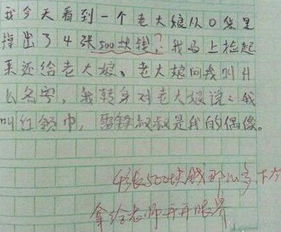 我今天看到一个老大娘从口袋里
掉出了4张500块钱?我马上捡起
来还给老大娘。老大娘问我叫什
么名字,我转身对老大娘说:我
叫红领巾,雷锋叔叔是我的偶像。
4张500块钱那么多,下次
拿给老师开开眼界